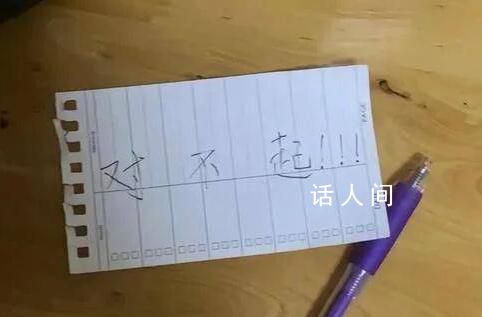 对不起!!!
话人间
PAGE